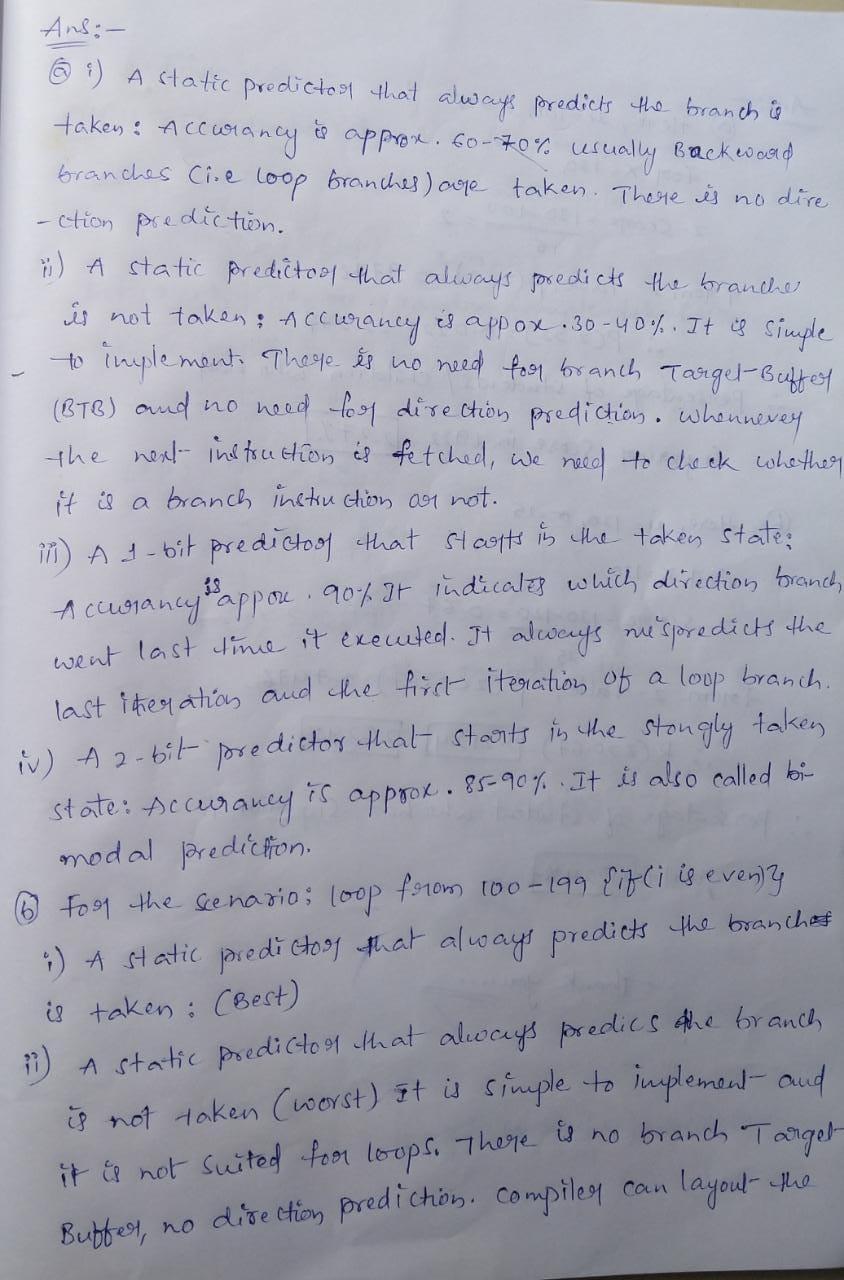 Ans:-
(a) i) A static predictor that always predicts the branch is
taken: Accurancy is approx. 60-70% usually Backward
branches (i.e loop branches) are taken. There is no dire
-ction prediction.
ii) A static predictor that always predicts the branche
is not taken; Accurancy is appox. 30-40%. It is Simple
to implement. There is no need for branch Target-Buffer
(BTB) and no need for direction prediction. Whennever
the next instruction is fetched, we need to check whether
it is a branch instruction or not.
iii) A 1-bit predictor that starts in the taken state;
Accurancy is appox. 90% It indicates which direction branch
went last time it executed. It always mispredicts the
last iteration and the first iteration of a loop branch.
iv) A 2-bit predictor that starts in the stongly taken
state: Accurancy is approx. 85-90%. It is also called bi-
modal prediction.
(b) For the scenario; loop from 100-199 {if(i is even)}
i) A static predictor that always predicts the branches
is taken: (Best)
ii) A static predictor that always predics the branch
is not taken (worst) It is simple to implement and
it is not suited for loops. There is no branch Target
Buffer, no direction prediction. Compiler can layout the